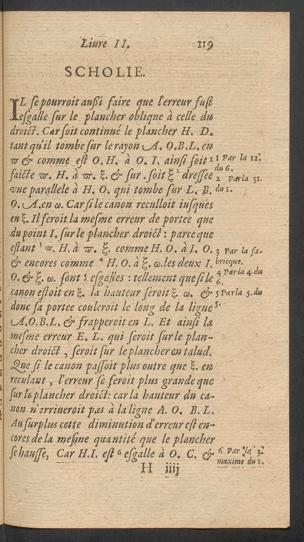 Liure II. 119
SCHOLIE.
IL se pourroit aussi faire que l'erreur fust
esgalle sur le plancher oblique à celle du
droict. Car soit continué le plancher H. D.
tant qu'il tombe sur le rayon A. O.B.L. en
ϖ & comme est O. H. à O. I. ainsi soit 1
faicte ϖ. H. à ϖ. ξ. & sur. soit ξ 2 dressée
vne parallele à H. O. qui tombe sur L. B.
O. A. en ω. Car si le canon reculloit iusques
en ξ. Il feroit la mesme erreur de portee que
du point I. sur le plancher droict : parce que
estant 3 ϖ. H. à ϖ. ξ. comme H. O. à I. O.
& encores comme 4 H. O. à ξ. ω. les deux I.
O. & ξ. ω. sont 5 esgalles : tellement que si le
canon estoit en ξ. la hauteur seroit ξ. ω. &
donc sa portee couleroit le long de la ligne
A.O.B.L. & frapperoit en L. Et ainsi la
mesme erreur E. L. qui seroit sur le plan-
cher droict, seroit sur le plancher en talud.
Que si le canon passoit plus outre que ξ. en
reculant, l'erreur se feroit plus grande que
sur le plancher droict: car la hauteur du ca-
non n'arriueroit pas à la ligne A. O. B. L.
Au surplus cette diminution d'erreur est en-
cores de la mesme quantité que le plancher
se hausse, Car H.I. est 6 esgalle à O. C. &
H iiij
1 Par la 12.
du 6.
2 Par la 31.
du 1.
3 Par la fa-
bricque.
4 Par la 4. du
6.
5 Par la 5. du
5.
6 Par la 3.
maxime du 1.